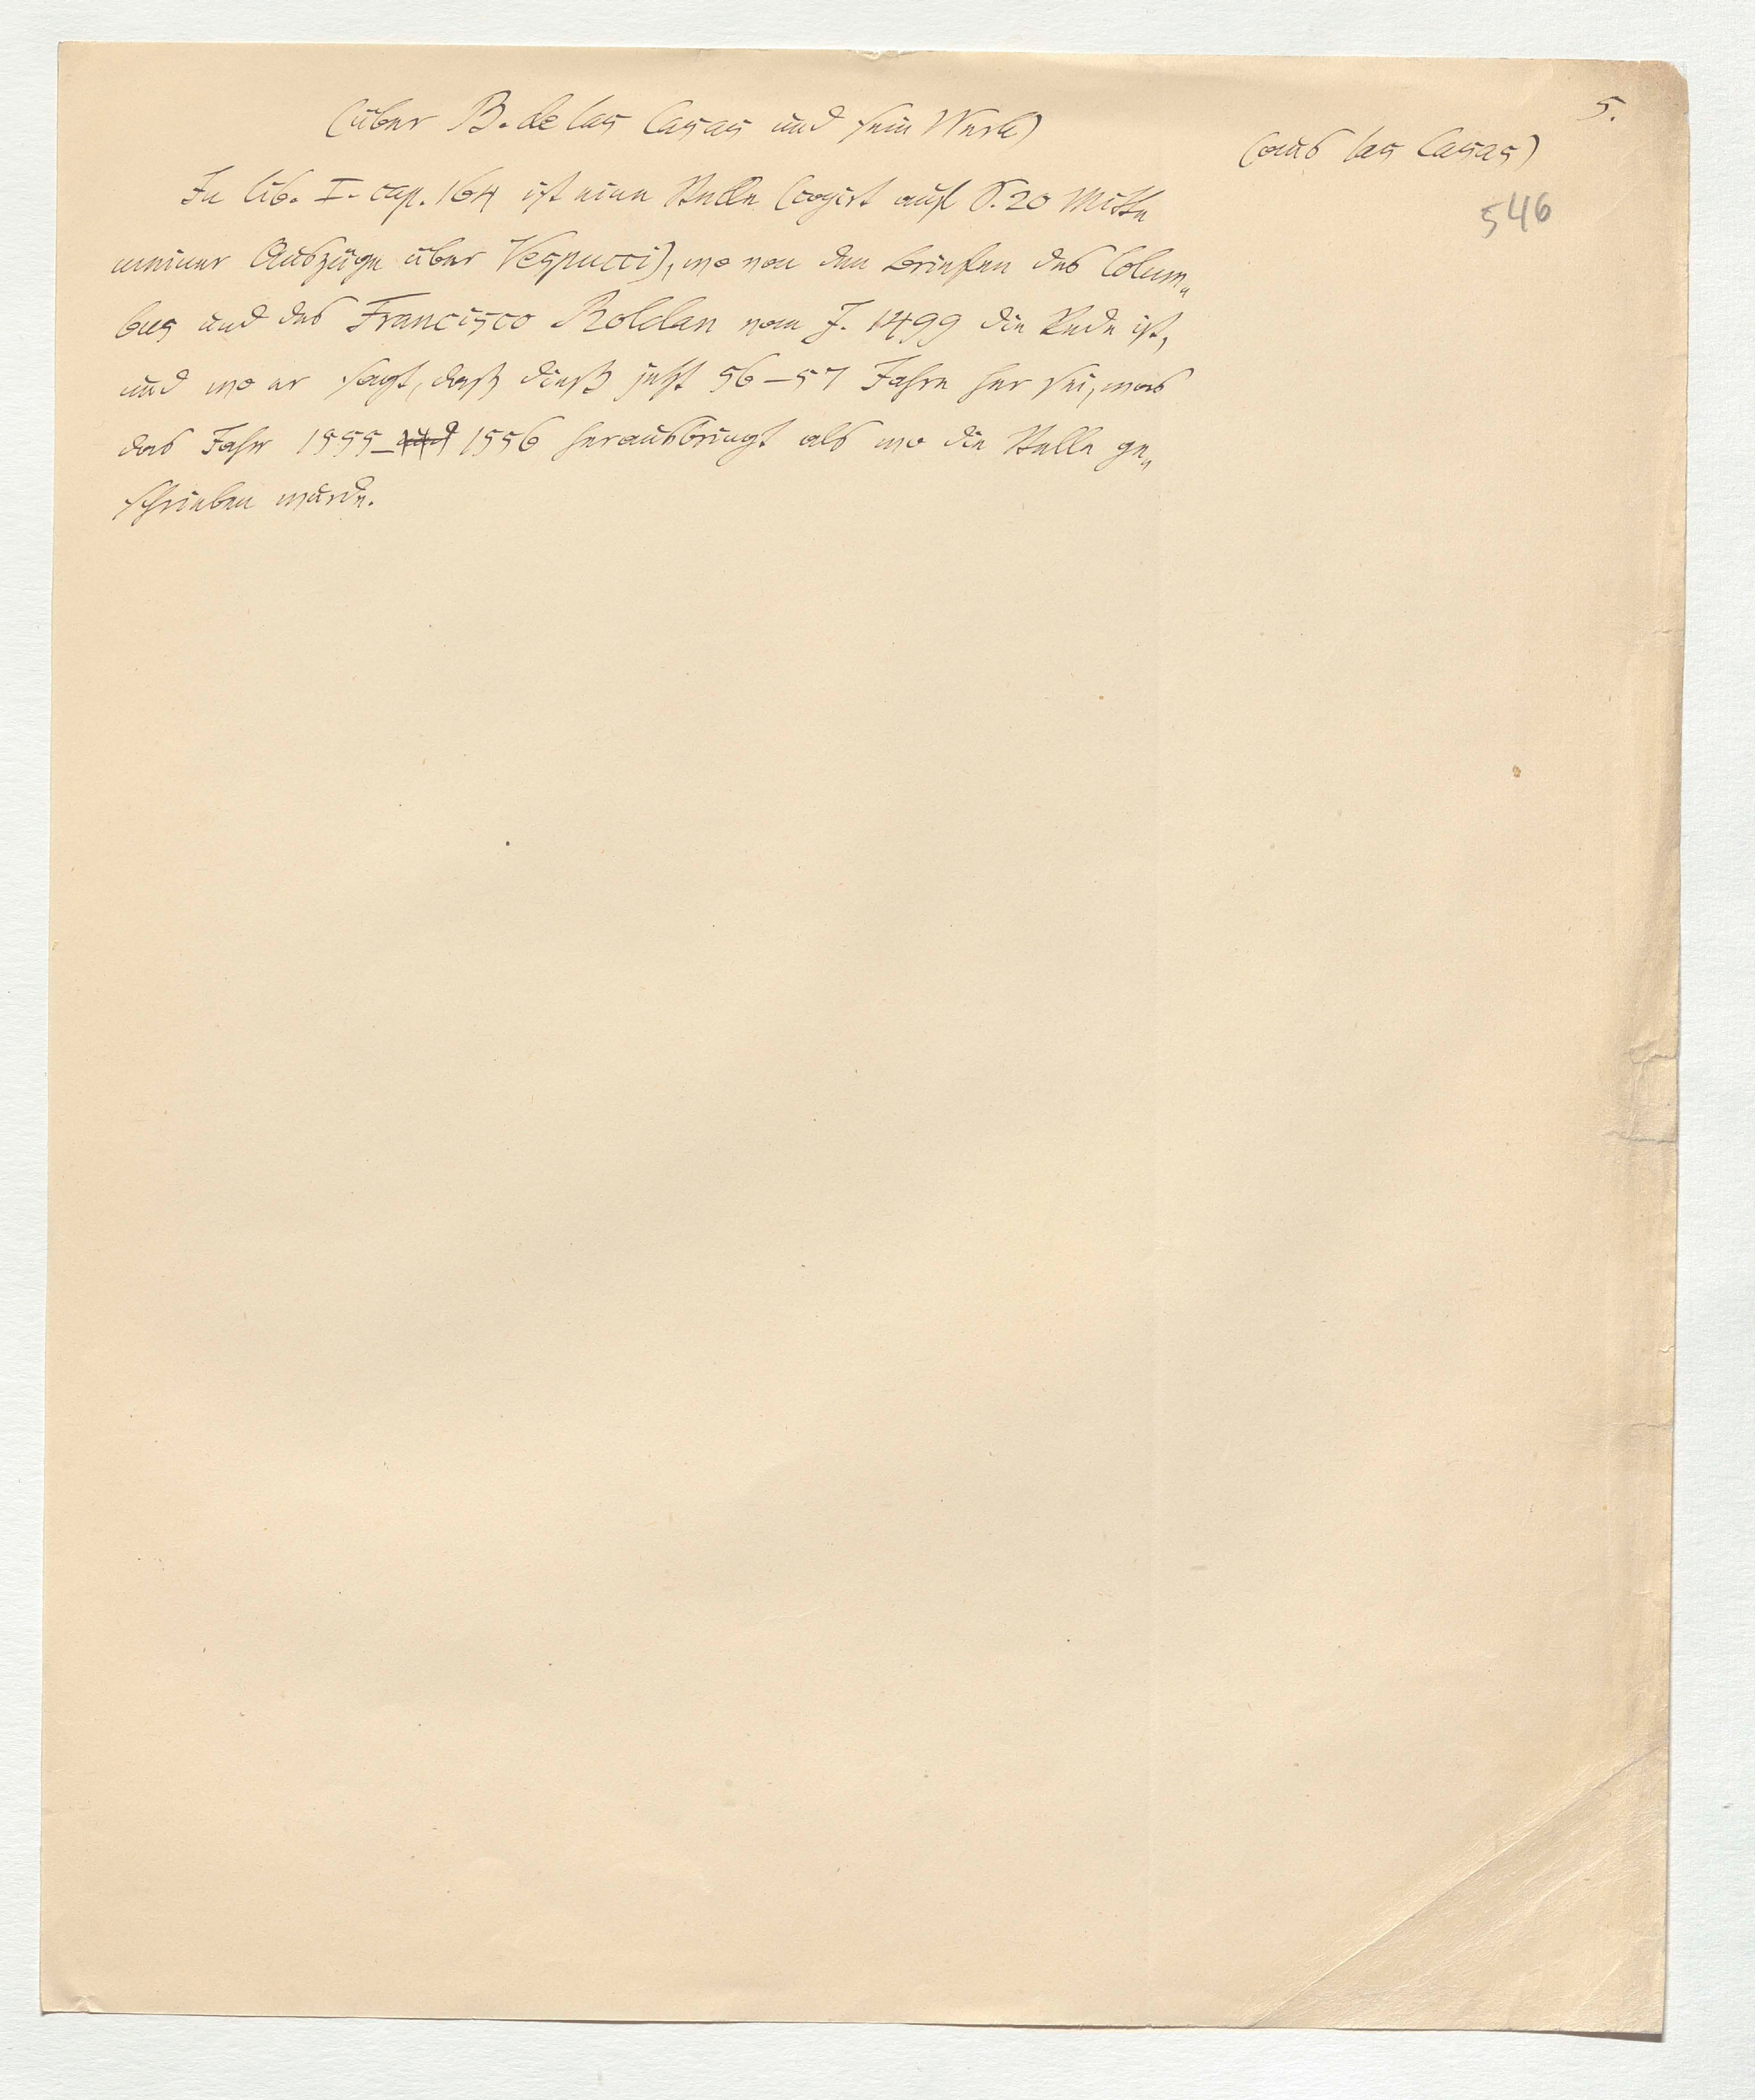 5.
(über B. de las Casas und sein Werk)
(aus las Casas)
546
In lib. I. cap. 164 ist eine Stelle (copirt auf S. 20 Mitte
meiner Auszüge über Vespucci), wo von den Briefen des Colum„
bus und des Francisco Roldan vom J. 1499 die Rede ist,
und wo er sagt, daß dieß jetzt 56–57 Jahre her sei, was
das Jahr 1555–und 1556 herausbringt als wo die Stelle ge„
schrieben wurde.